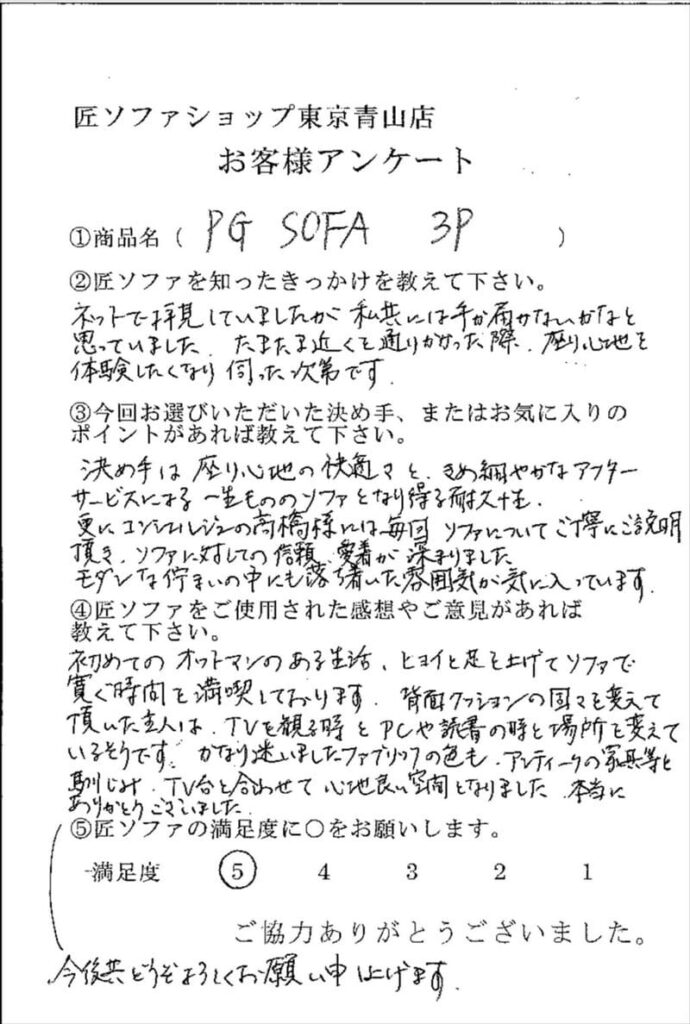 匠ソファショップ東京青山店
お客様アンケート
①商品名（ PG SOFA 3P ）
②匠ソファを知ったきっかけを教えて下さい。
ネットで拝見していましたが 私共には手が届かないかなと
思っていました．たまたま近くを通りかかった際．座り心地を
体験したくなり 伺った次第です．
③今回お選びいただいた決め手、またはお気に入りの
ポイントがあれば教えて下さい。
決め手は 座り心地の快適さと、きめ細やかなアフター
サービスによる 一生もののソファとなり得る耐久性．
更に コンシェルジュの高橋様には毎回 ソファについてご丁寧にご説明
頂き．ソファに対しての信頼、愛着が 深まりました
モダンな佇まいの中にも落ち着いた雰囲気が気に入っています．
④匠ソファをご使用された感想やご意見があれば
教えて下さい。
初めての オットマンのある生活、ヒョイと足を上げてソファで
寛ぐ時間を 満喫しております．背面クッションの固さを変えて
頂いた主人は、TVを観る時と PCや読書の時と場所を変えて
いるそうです．かなり迷いましたファブリックの色も、アンティークの家具等と
馴じみ．TV台と合わせて 心地良い空間となりました．本当に
ありがとうございました．
⑤匠ソファの満足度に○をお願いします。
満足度 5 4 3 2 1
ご協力ありがとうございました。
今後共どうぞよろしくお願い申し上げます．